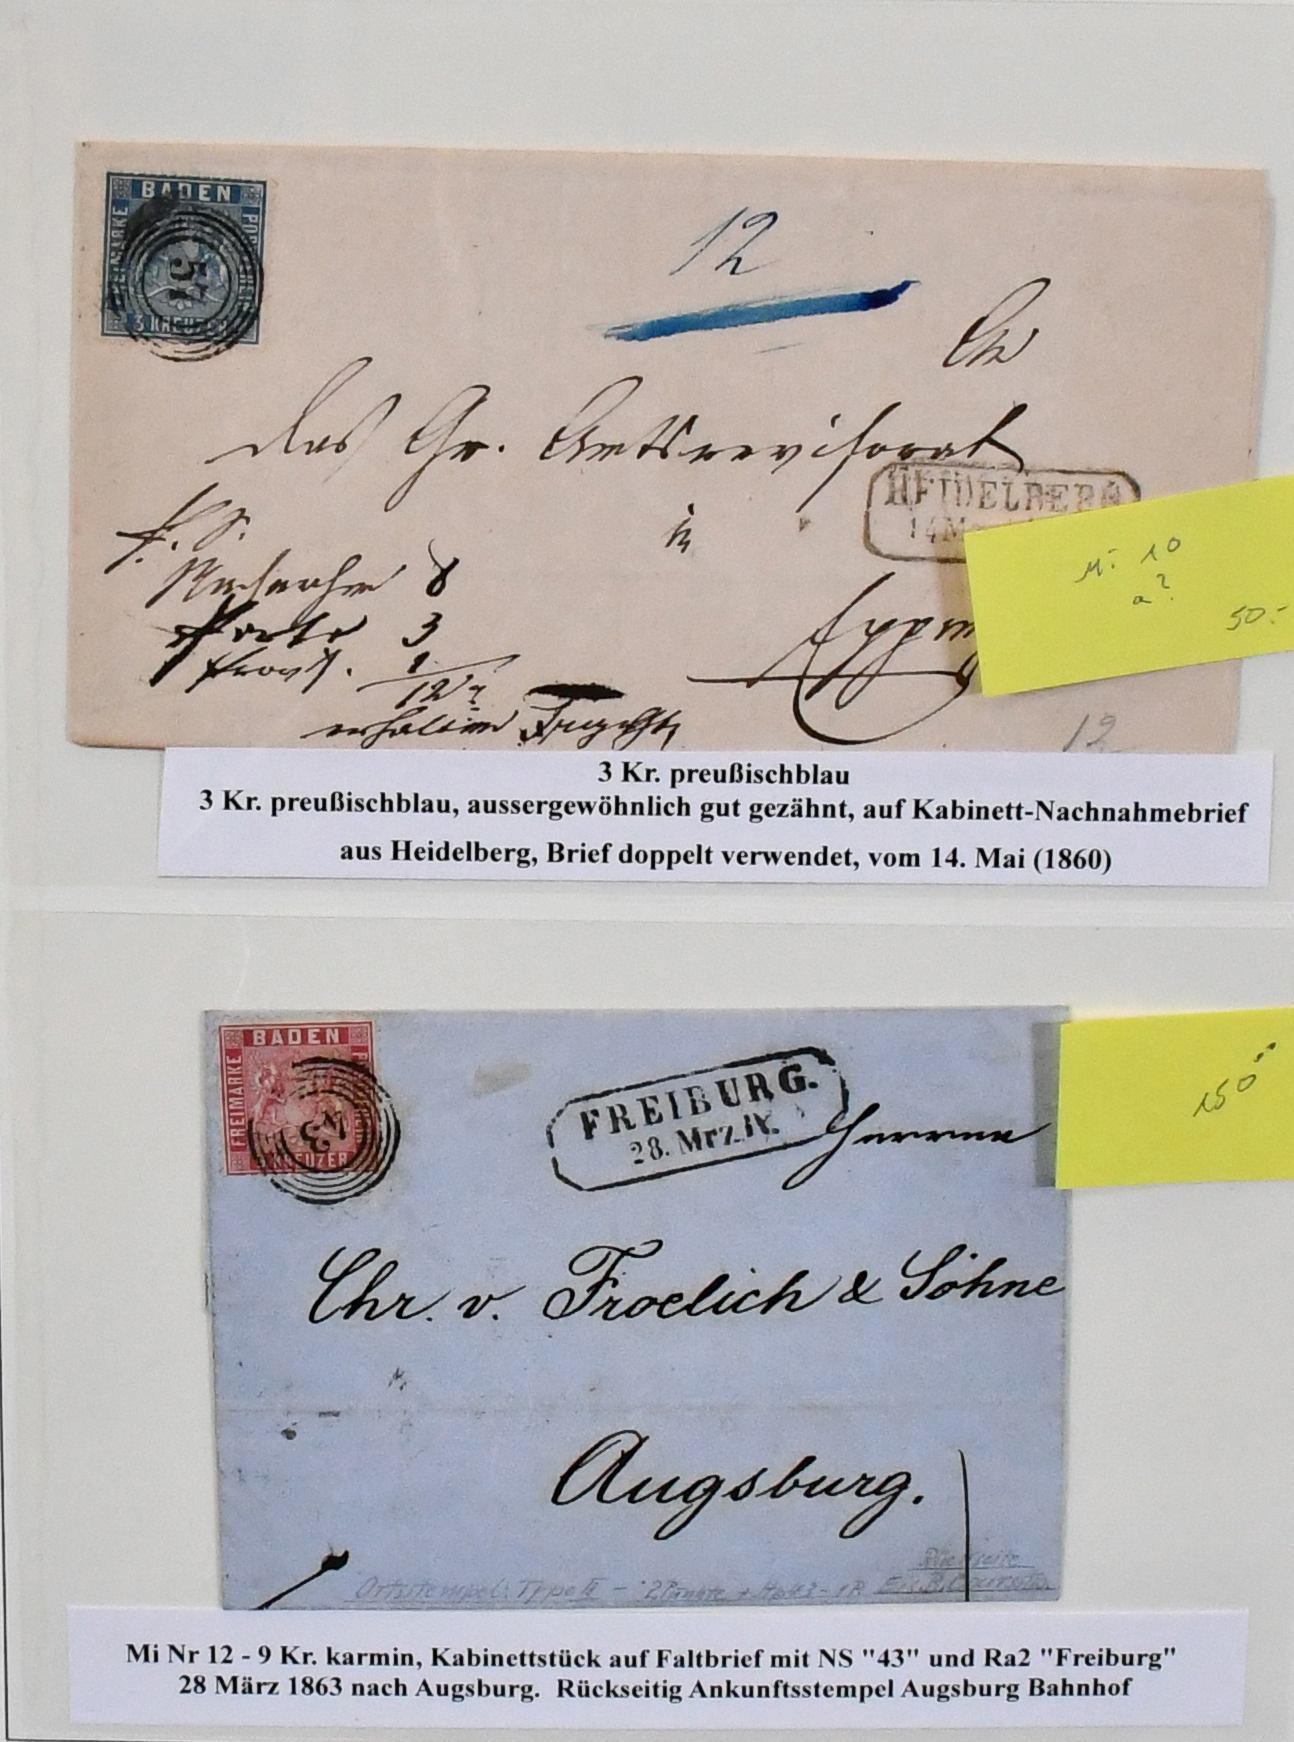 BADEN
FREIMARKE
57
3 KREUZER
12
An
das Gr. Amtsrevisorat
HEIDELBERG
14
in
Nachnahme 8
Porto 3
Provis. 1
12
erhalten
12
M: 10
a?
50.-
3 Kr. preußischblau
3 Kr. preußischblau, aussergewöhnlich gut gezähnt, auf Kabinett-Nachnahmebrief
aus Heidelberg, Brief doppelt verwendet, vom 14. Mai (1860)
BADEN
FREIMARKE
43
KREUZER
FREIBURG.
28. Mrz. IV.
Herren
150
Chr. v. Froelich & Söhne
Augsburg.
Rückseite
Ortsstempel: Type II - 2 Punkte
Mi Nr 12 - 9 Kr. karmin, Kabinettstück auf Faltbrief mit NS "43" und Ra2 "Freiburg"
28 März 1863 nach Augsburg. Rückseitig Ankunftsstempel Augsburg Bahnhof